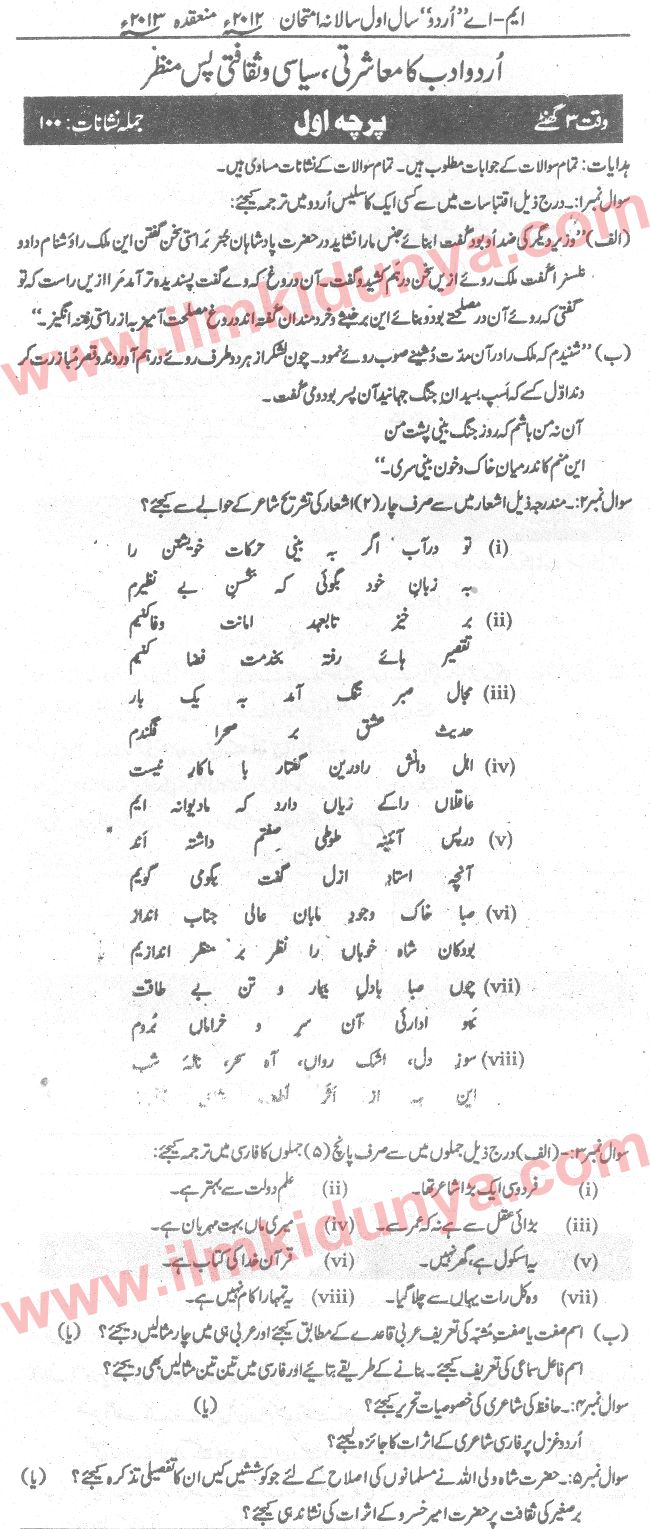 ایم-اے "اُردو" سال اول سالانہ امتحان ۲۰۱۲ء منعقدہ ۲۰۱۳ء
اُردو ادب کا معاشرتی، سیاسی و ثقافتی پس منظر
وقت ۳ گھنٹے پرچہ اول جملہ نشانات: ۱۰۰
ہدایات: تمام سوالات کے جوابات مطلوب ہیں۔ تمام سوالات کے نشانات مساوی ہیں۔
سوال نمبر۱:۔ درج ذیل اقتباسات میں سے کسی ایک کا سلیس اُردو میں ترجمہ کیجئے:
(الف) "وزیر دیگر کی ضد او بود گفت ابنائے جنس مارا نشاید در حضرت پادشاہان جز براستی سخن گفتن این ملک را دشنام داد و
ناسزا گفت ملک روئے ازیں سخن درہم کشید و گفت۔ آن دروغ کہ وے گفت پسندیدہ تر آمد مرا ازیں راست کہ تو
گفتی کہ روئے آن در مصلحتے بود و بنائے این بر خبثے و خردمندان گفتہ اند دروغ مصلحت آمیز بہ از راستی فتنہ انگیز۔"
(ب) "شنیدم کہ ملک را در آن مدت دشمنے صعوب روئے نمود۔ چون لشکر از ہر دو طرف روئے درہم آوردند و قصر مبازرت کر
دند اوّل کسے کہ اَسپ بمیدان جنگ جہانید آن پسر بود و می گفت۔
آن نہ من باشم کہ روز جنگ بینی پشت من
این منم کاندر میان خاک و خون بینی سری۔"
سوال نمبر۲:۔ مندرجہ ذیل اشعار میں سے صرف چار (۴) اشعار کی تشریح شاعر کے حوالے سے کیجئے؟
(i) تو در آب اگر بہ بینی حرکات خویشتن را
بہ زبان خود بگوئی کہ بحُسنِ بے نظیرم
(ii) بر خیز تابعہد امانت وفا کنیم
تقصیر ہائے رفتہ بخدمت قضا کنیم
(iii) مجال صبر تنگ آمد بہ یک بار
حدیث عشق بر صحرا فگندم
(iv) اہل دانش رادرین گفتار با ماکار نیست
عاقلاں راکے زیاں دارد کہ مادیوانہ ایم
(v) درپس آئینہ طوطی صفتم داشتہ اَند
آنچہ استادِ ازل گفت بگومی گویم
(vi) صبا خاک وجودِ مابان عالی جناب انداز
بودکان شاہ خوباں را نظر بر منظر اندازیم
(vii) چوں صبا بادلِ بیمار و تن بے طاقت
آن سر و خراماں بُردم
(viii) سوزِ دل، اشک رواں، آہ سحر، نالۂ شب
این ہمہ از اَثر
سوال نمبر۳:۔ (الف) درج ذیل جملوں میں سے صرف پانچ (۵) جملوں کا فارسی میں ترجمہ کیجئے:
(i) فردوسی ایک بڑا شاعر تھا۔ (ii) علم دولت سے بہتر ہے۔
(iii) بڑائی عقل سے ہے نہ کہ عمر سے۔ (iv) میری ماں بہت مہربان ہے۔
(v) یہ اسکول ہے، گھر نہیں۔ (vi) قرآن خدا کی کتاب ہے۔
(vii) وہ کل رات یہاں سے چلا گیا۔ (viii) یہ تمہارا کام نہیں ہے۔
(ب) اسم صفت یا صفتِ مُشبّہ کی تعریف عربی قاعدے کے مطابق کیجئے اور عربی ہی میں چار مثالیں دیجئے؟ (یا)
اسم فاعل سماعی کی تعریف کیجئے۔ بنانے کے طریقے بتائیے اور فارسی میں تین تین مثالیں بھی دیجئے؟
سوال نمبر۴:۔ حافظ کی شاعری کی خصوصیات تحریر کیجئے؟ (یا)
اُردو غزل پر فارسی شاعری کے اثرات کا جائزہ لیجئے؟
سوال نمبر۵:۔ حضرت شاہ ولی اللہ نے مسلمانوں کی اصلاح کے لئے جو کوششیں کیں ان کا تفصیلی تذکرہ کیجئے؟ (یا)
برصغیر کی ثقافت پر حضرت امیر خسرو کے اثرات کی نشاندہی کیجئے؟
www.ilmkidunya.com
www.ilmkidunya.com